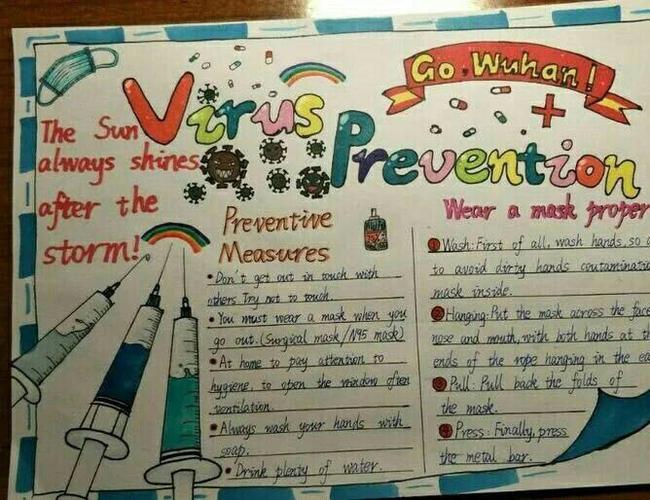 Go Wuhan!
Virus
Prevention
The Sun
always shines
after the
storm!
Preventive
Measures
•Don't get out in touch with
others Try not to touch.
•You must wear a mask when you
go out.(Surgical mask/N95 mask)
•At home to pay attention to
hygiene, to open the window often
ventilation.
•Always wash your hands with
soap.
•Drink plenty of water.
Wear a mask proper
①Wash:First of all, wash hands,so a
to avoid dirty hands contaminatio
mask inside.
②Hanging:Put the mask across the face
nose and mouth,with both hands at th
ends of the rope hanging in the ea
③Pull: Pull back the folds of
the mask.
④Press: Finally, press
the metal bar.